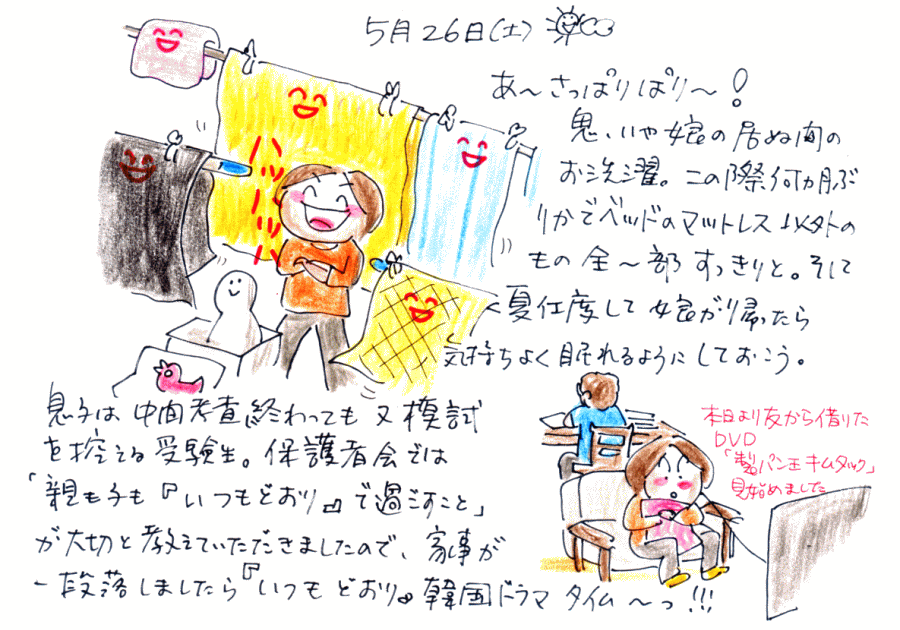 5月26日(土)
あ〜さっぱりぱり〜!
鬼、いや娘の居ぬ間の
お洗濯。この際何カ月ぶ
りかでベッドのマットレス以外の
もの全〜部すっきりと。そして
夏仕度して娘が帰ったら
気持ちよく眠れるようにしておこう。
ハッハッハッハッ
息子は中間考査終わっても又模試
を控える受験生。保護者会では
「親も子も『いつもどおり』で過ごすこと」
が大切と教えていただきましたので、家事が
一段落しましたら『いつもどおり』韓国ドラマタイム〜っ!!!
本日より友から借りた
DVD
「製パン王キムタック」
見始めました